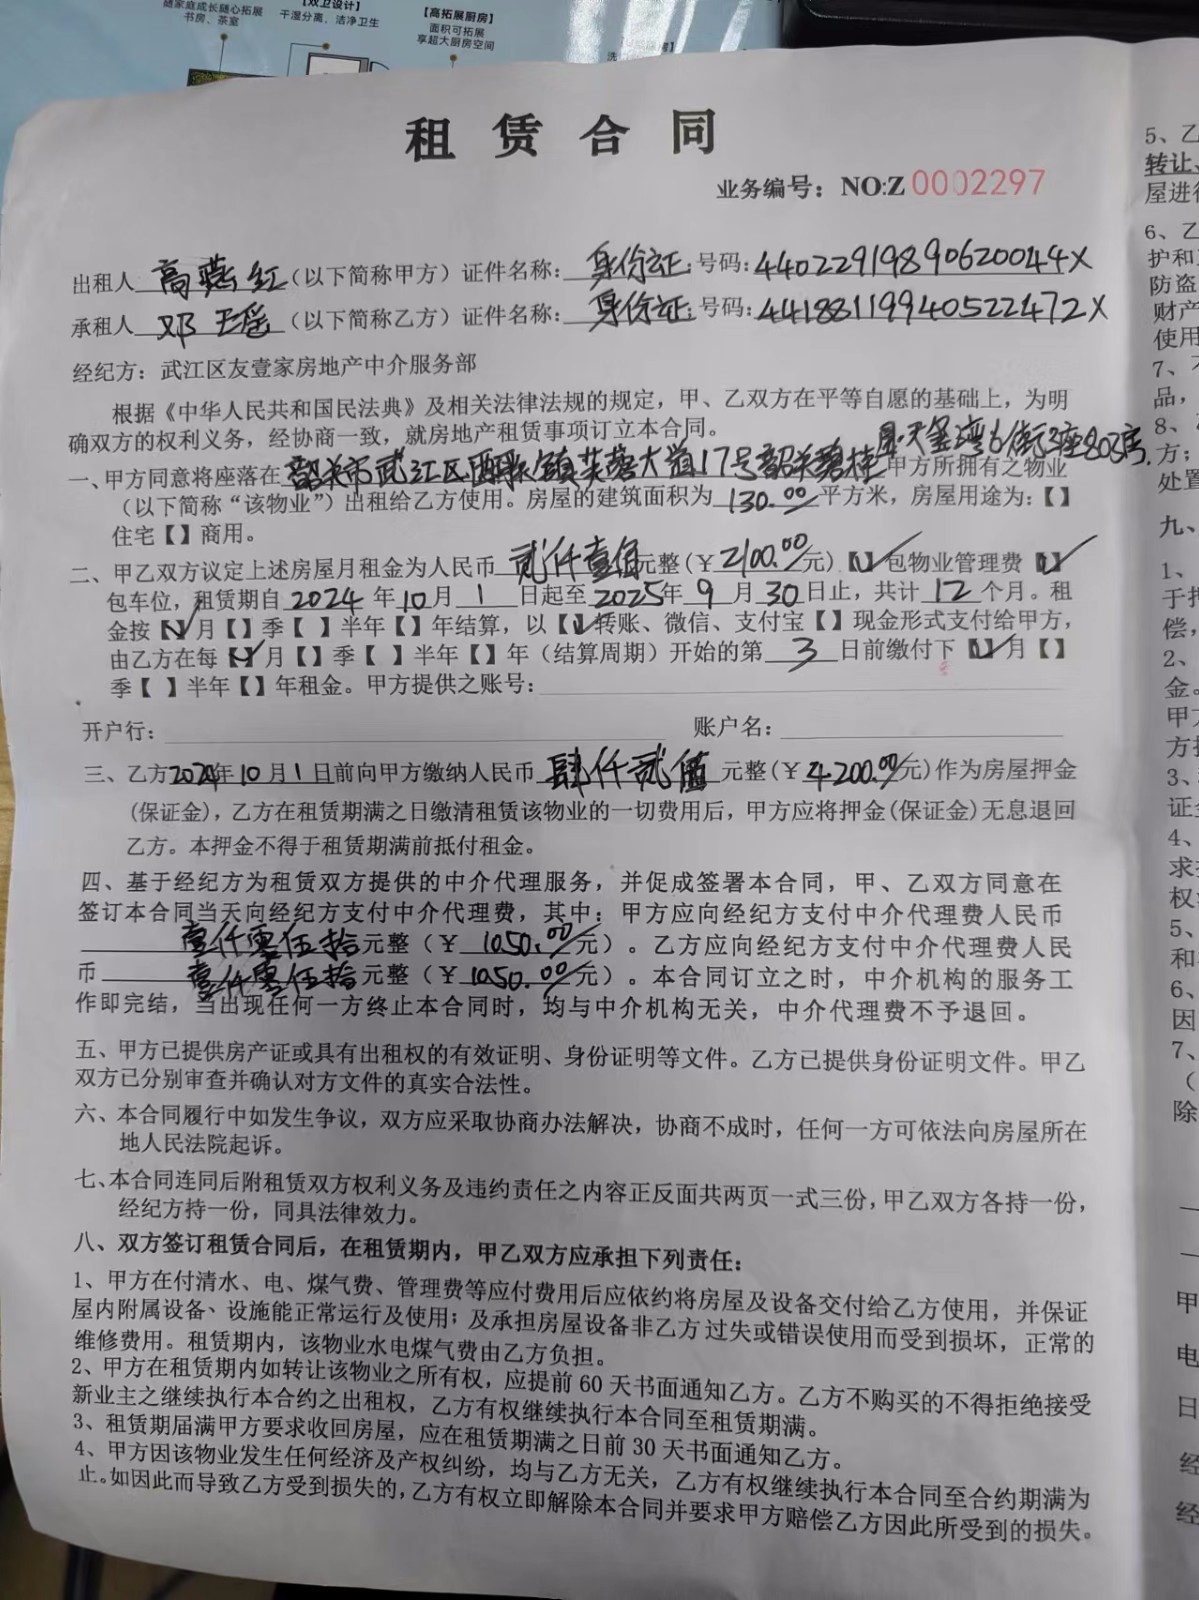 随家庭成长随心拓展
书房、茶室
【双卫设计】
干湿分离、洁净卫生
【高拓展厨房】
面积可拓展
享超大厨房空间
租赁合同
业务编号：NO:Z 0002297
出租人 高燕红（以下简称甲方）证件名称：身份证；号码：44022919890620044X
承租人 邓玉瑶（以下简称乙方）证件名称：身份证；号码：44188119940522472X
经纪方：武江区友壹家房地产中介服务部
根据《中华人民共和国民法典》及相关法律法规的规定，甲、乙双方在平等自愿的基础上，为明
确双方的权利义务，经协商一致，就房地产租赁事项订立本合同。
一、甲方同意将座落在 韶关市武江区西联镇芙蓉大道17号韶关碧桂园·天玺湾6街3座803房. 甲方所拥有之物业
（以下简称“该物业”）出租给乙方使用。房屋的建筑面积为 130.00 平方米，房屋用途为：【】
住宅【】商用。
二、甲乙双方议定上述房屋月租金为人民币 贰仟壹佰 元整（￥2100.00元）【✓】包物业管理费【✓】
包车位，租赁期自 2024 年 10 月 1 日起至 2025 年 9 月 30 日止，共计 12 个月。租
金按【✓】月【】季【 】半年【】年结算，以【✓】转账、微信、支付宝【】现金形式支付给甲方，
由乙方在每【✓】月【】季【 】半年【】年（结算周期）开始的第 3 日前缴付下【✓】月【】
季【 】半年【】年租金。甲方提供之账号：
开户行： 账户名：
三、乙方2024年10月1日前向甲方缴纳人民币 肆仟贰佰 元整（￥4200.00元）作为房屋押金
（保证金），乙方在租赁期满之日缴清租赁该物业的一切费用后，甲方应将押金（保证金）无息退回
乙方。本押金不得于租赁期满前抵付租金。
四、基于经纪方为租赁双方提供的中介代理服务，并促成签署本合同，甲、乙双方同意在
签订本合同当天向经纪方支付中介代理费，其中：甲方应向经纪方支付中介代理费人民币
壹仟零伍拾元整（￥1050.00元）。乙方应向经纪方支付中介代理费人民
币 壹仟零伍拾元整（￥1050.00元）。本合同订立之时，中介机构的服务工
作即完结，当出现任何一方终止本合同时，均与中介机构无关，中介代理费不予退回。
五、甲方已提供房产证或具有出租权的有效证明、身份证明等文件。乙方已提供身份证明文件。甲乙
双方已分别审查并确认对方文件的真实合法性。
六、本合同履行中如发生争议，双方应采取协商办法解决，协商不成时，任何一方可依法向房屋所在
地人民法院起诉。
七、本合同连同后附租赁双方权利义务及违约责任之内容正反面共两页一式三份，甲乙双方各持一份，
经纪方持一份，同具法律效力。
八、双方签订租赁合同后，在租赁期内，甲乙双方应承担下列责任：
1、甲方在付清水、电、煤气费、管理费等应付费用后应依约将房屋及设备交付给乙方使用，并保证
屋内附属设备、设施能正常运行及使用；及承担房屋设备非乙方过失或错误使用而受到损坏，正常的
维修费用。租赁期内，该物业水电煤气费由乙方负担。
2、甲方在租赁期内如转让该物业之所有权，应提前60天书面通知乙方。乙方不购买的不得拒绝接受
新业主之继续执行本合约之出租权，乙方有权继续执行本合同至租赁期满。
3、租赁期届满甲方要求收回房屋，应在租赁期满之日前30天书面通知乙方。
4、甲方因该物业发生任何经济及产权纠纷，均与乙方无关，乙方有权继续执行本合同至合约期满为
止。如因此而导致乙方受到损失的，乙方有权立即解除本合同并要求甲方赔偿乙方因此所受到的损失。
5、乙
转让、
屋进行
6、乙
护和
防盗
财产
使用
7、
品，
8、
方；
处置
九、
1、
于
偿，
2、
金。
甲方
方
3、
证金
4、
求
权
5、
和
6、
因
7、
（
除
甲
电
日
经
经